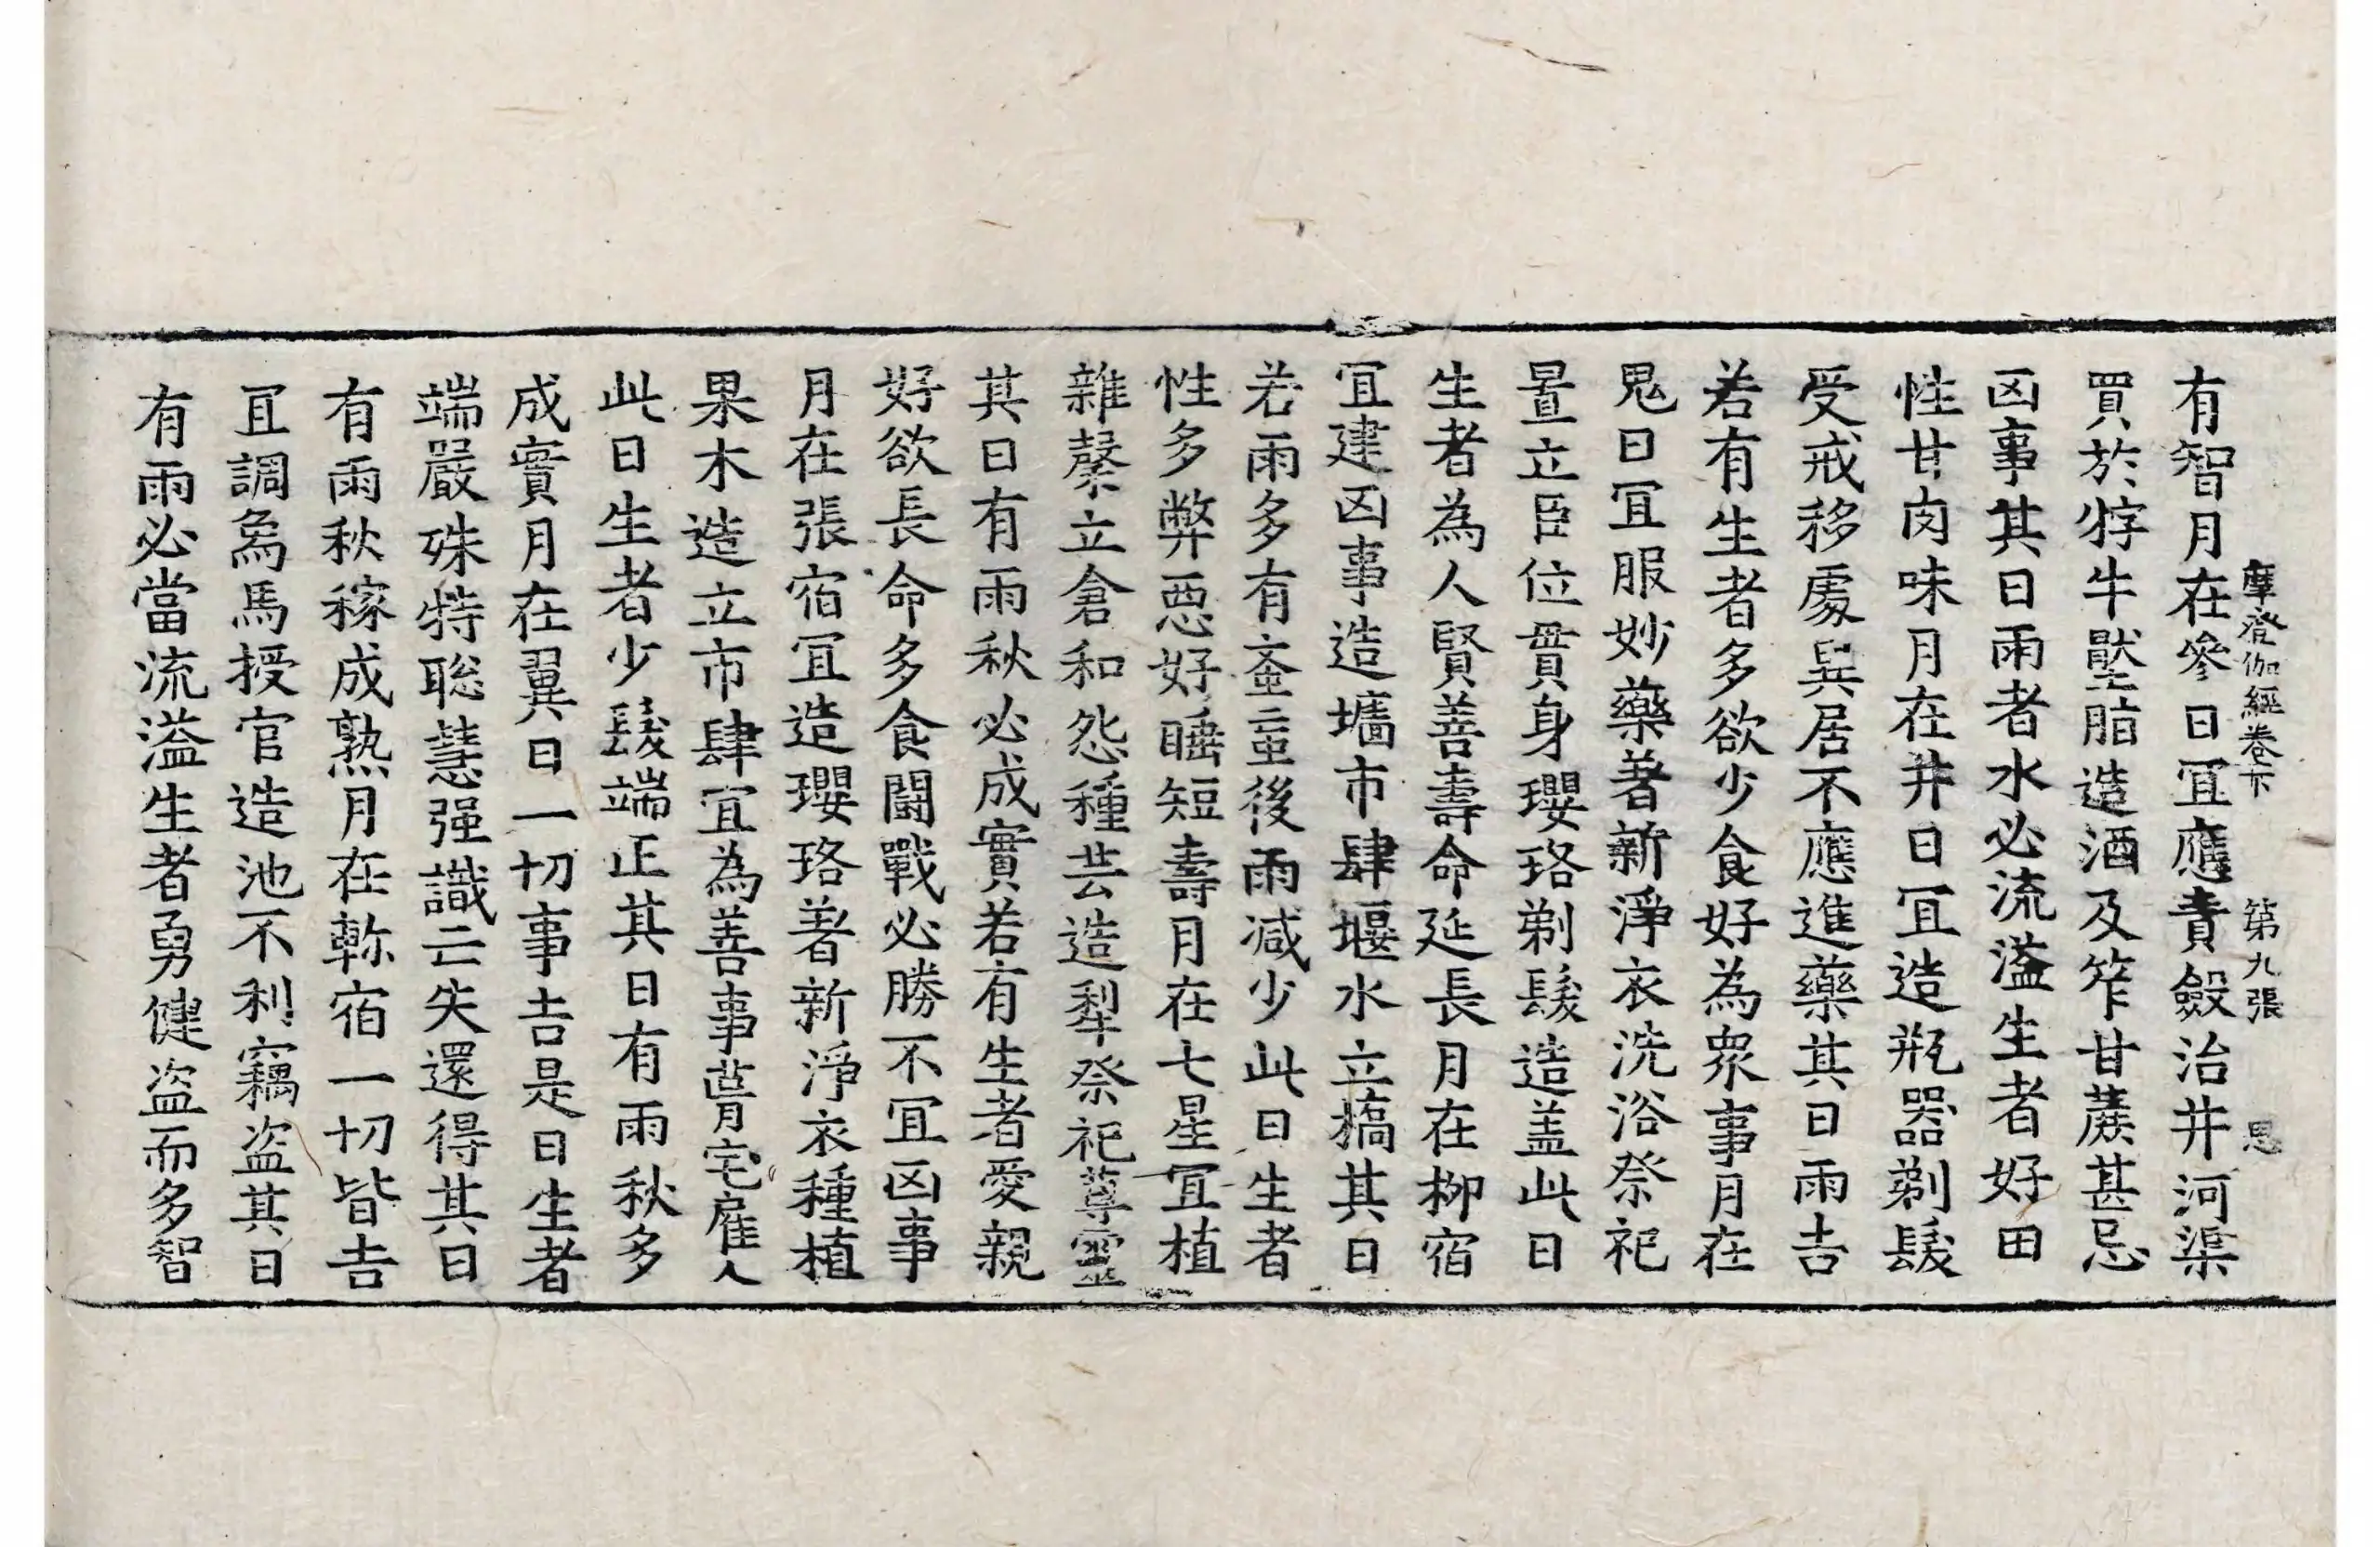 摩登伽經卷下 第九張 思
有智月在參日冝應責斂治井河渠
買於牸牛壓脂造酒及笮甘蔗甚忌
凶事其日雨者水必流溢生者好田
性甘肉味月在井日冝造瓶器剃髮
受戒移處異居不應進藥其日雨吉
若有生者多欲少食好為衆事月在
鬼日冝服妙藥著新淨衣洗浴祭祀
置立臣位貫身瓔珞剃髮造盖此日
生者為人賢善壽命延長月在柳宿
冝建凶事造墻市肆堰水立橋其日
若雨多有蚉䖟後雨減少此日生者
性多弊惡好睡短壽月在七星冝植
雜䅽立倉和怨種芸造犁祭祀尊靈
其日有雨秋必成實若有生者愛親
好欲長命多食鬪戰必勝不冝凶事
月在張宿冝造瓔珞著新淨衣種植
果木造立市肆宜為善事葺宅雇人
此日生者少髮端正其日有雨秋多
成實月在翼日一切事吉是日生者
端嚴殊特聡慧强識亡失還得其日
有雨秋稼成熟月在軫宿一切皆吉
冝調爲馬授官造池不利竊盗其日
有雨必當流溢生者勇健盗而多智